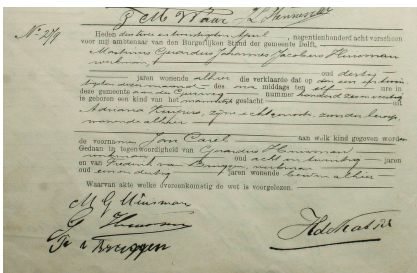 Nº 279
Heden den twee en twintigsten April, negentienhonderd acht verscheen
voor mij ambtenaar van den Burgerlijken Stand der gemeente Delft,
Martinus Gerardus Johannes Jacobus Huisman
werkman, oud dertig
jaren wonende alhier die verklaarde dat op den een en twin-
tigsten dezer maand des na middags ten elf ure in
deze gemeente aan de nummer honderd
is geboren een kind van het mannelijk geslacht uit
Adriana zijne echtgenoote, zonder beroep,
wonende alhier
aan welk kind gegeven worden
de voornamen Jan Carel
Gedaan in tegenwoordigheid van Gerardus Huisman
werkman oud acht en twintig jaren
en van Fredrik van Bruggen,
oud een en dertig jaren wonende beiden alhier
Waarvan akte welke overeenkomstig de wet is voorgelezen.
M G Huisman
G Huisman
F v Bruggen